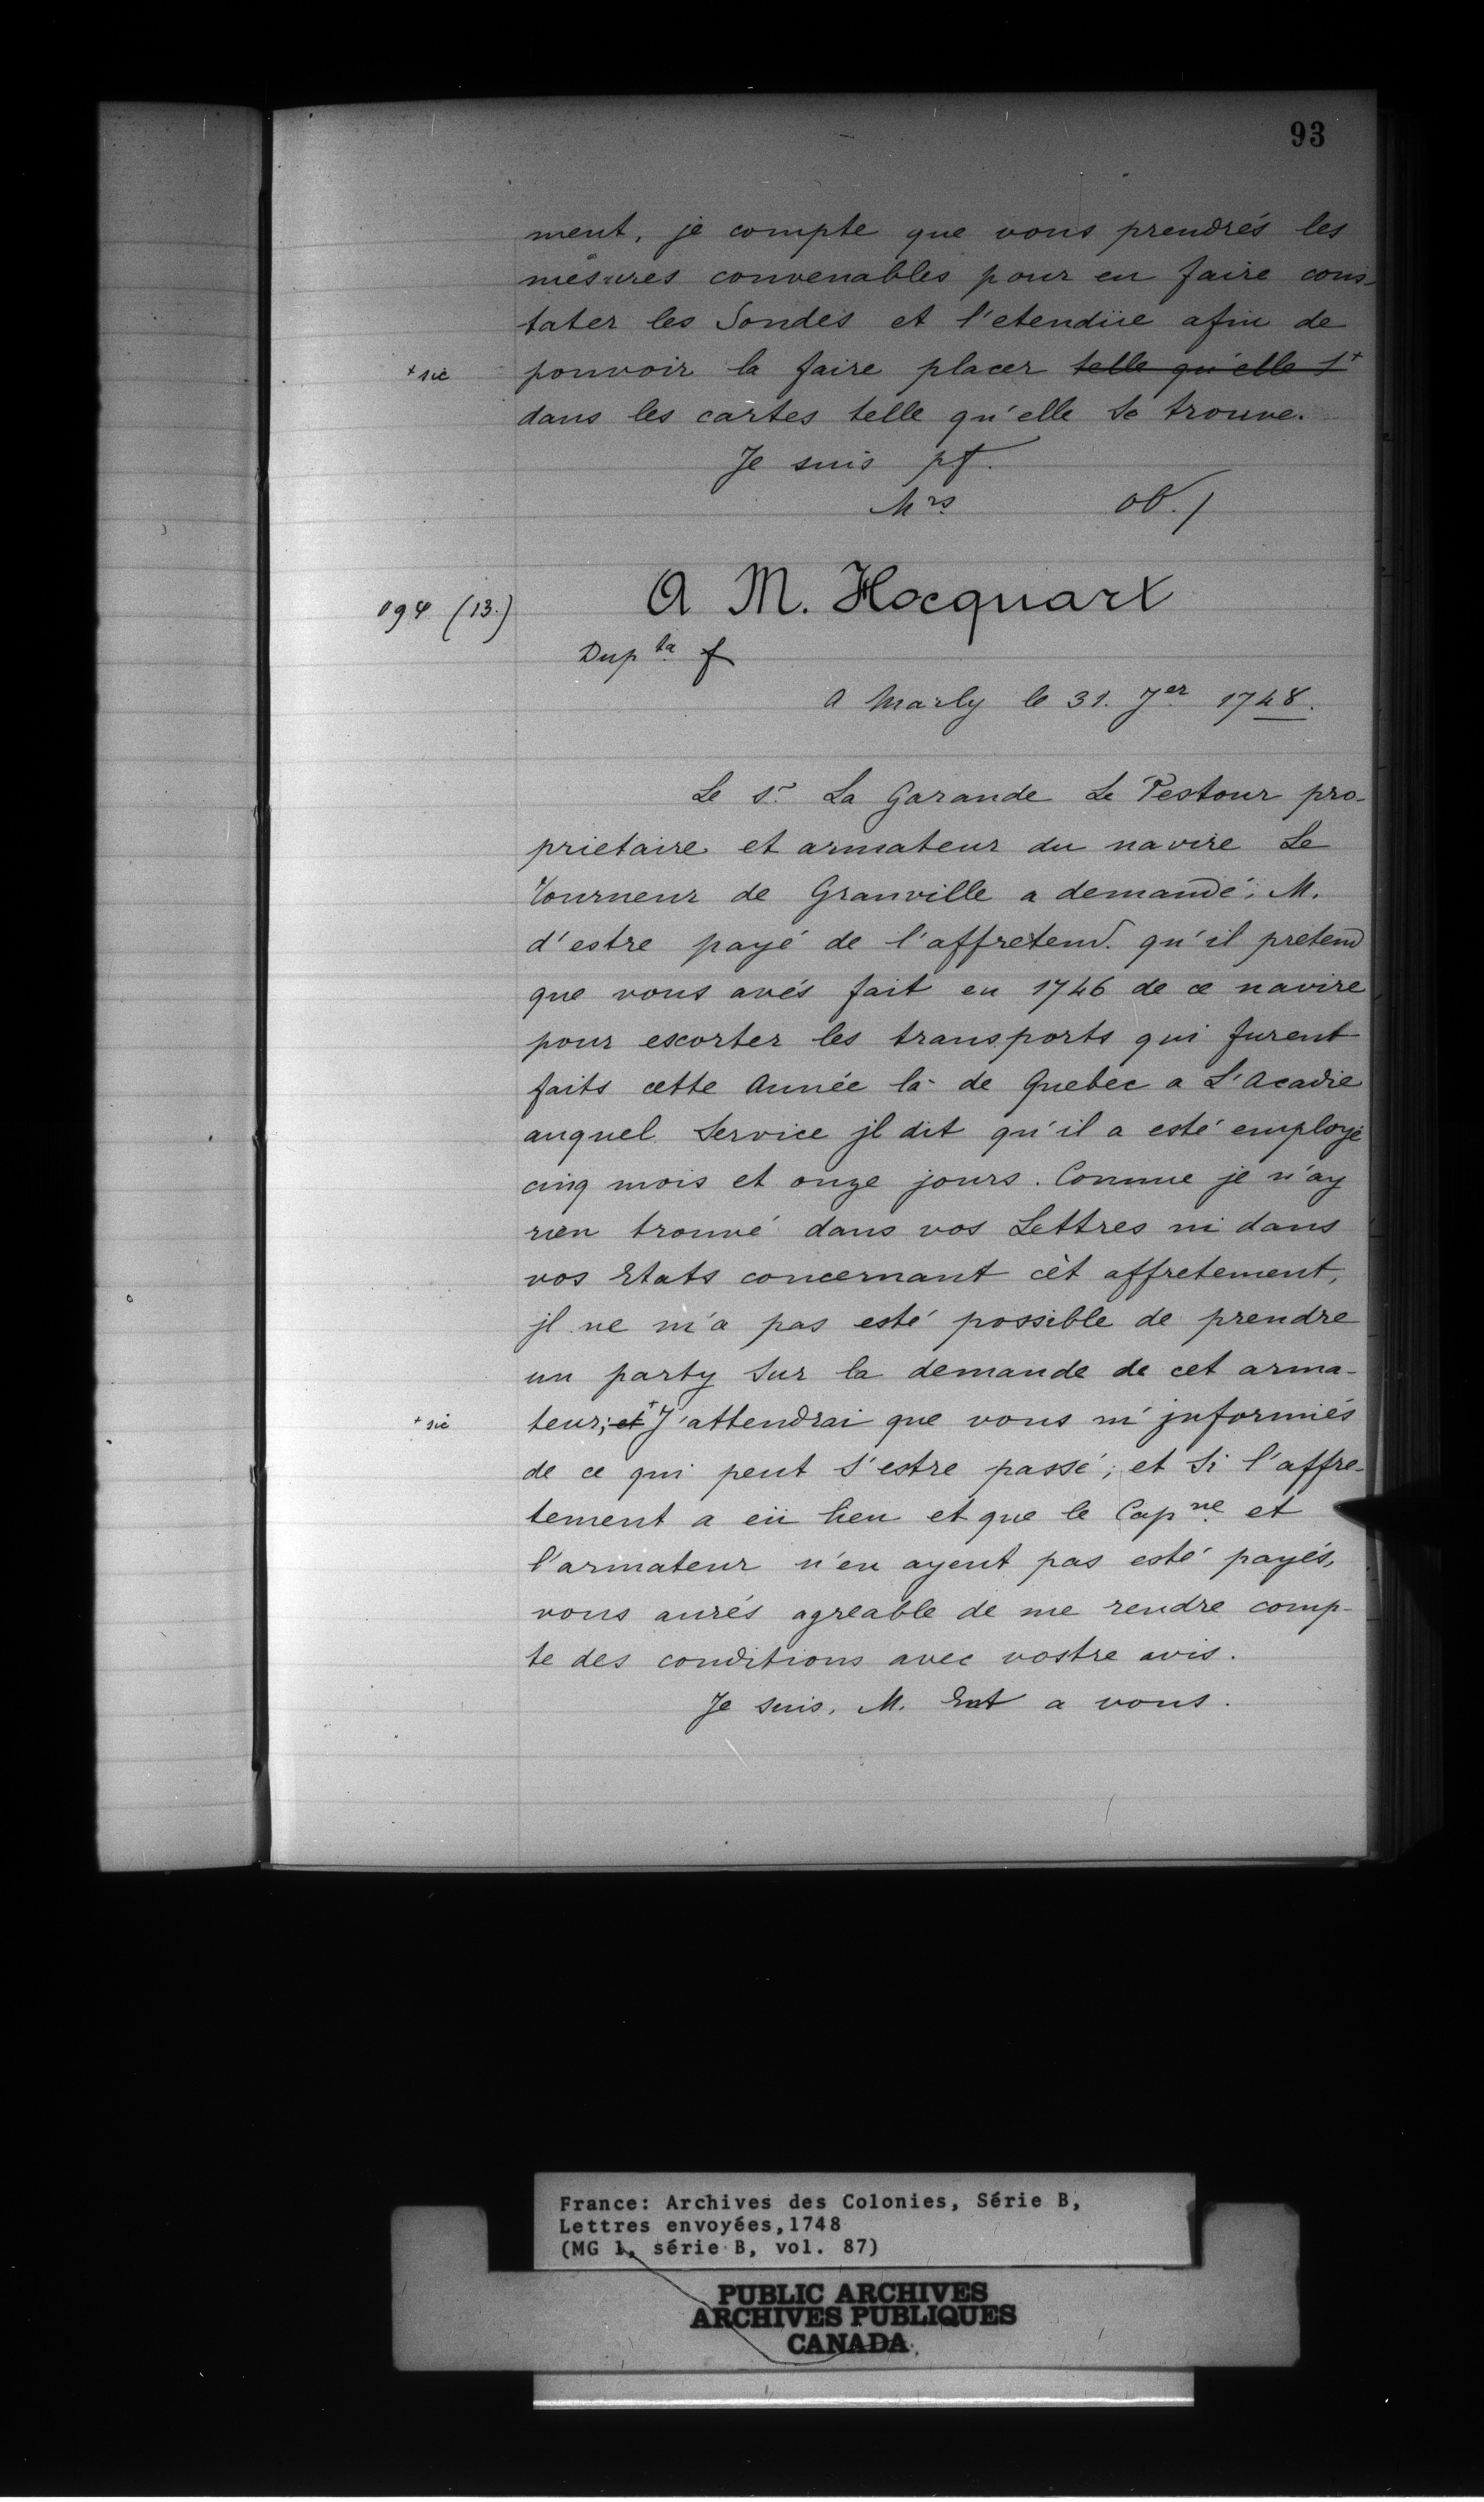 93
ment, je compte que vous prendrés les
mesures convenables pour en faire cons-
tater les Sondes et l'etendüe afin de
+ sic pouvoir la faire placer telle qu'elle S+
dans les cartes telle qu'elle Se trouve.
Je suis pt.
Mrs. ob./
094 (13.) A M. Hocquart
Dup ta f
A Marly le 31. Jer 1748.
Le Sr. La Garande Le Pestour pro-
prietaire et armateur du navire Le
Tourneur de Granville a demandé, M.
d'estre payé de l'affretemt. qu'il pretend
que vous avés fait en 1746 de ce navire
pour escorter les transports qui furent
faits cette Année la de Quebec a L'Acadie
auquel Service jl dit qu'il a esté employé
cinq mois et onze jours. Comme je n'ay
rien trouvé dans vos Lettres ni dans
vos Etats concernant cèt affretement,
jl ne m'a pas esté possible de prendre
un party Sur la demande de cet arma-
+ sic teur; et + J'attendrai que vous m'jnformiés
de ce qui peut S'estre passé; et Si l'affre-
tement a eü lieu et que le Capne. et
l'armateur n'en ayent pas esté payés,
vous aurés agreable de me rendre comp-
te des conditions avec vostre avis.
Je suis, M. Ent a vous.
France: Archives des Colonies, Série B,
Lettres envoyées, 1748
(MG 1, série B, vol. 87)
PUBLIC ARCHIVES
ARCHIVES PUBLIQUES
CANADA